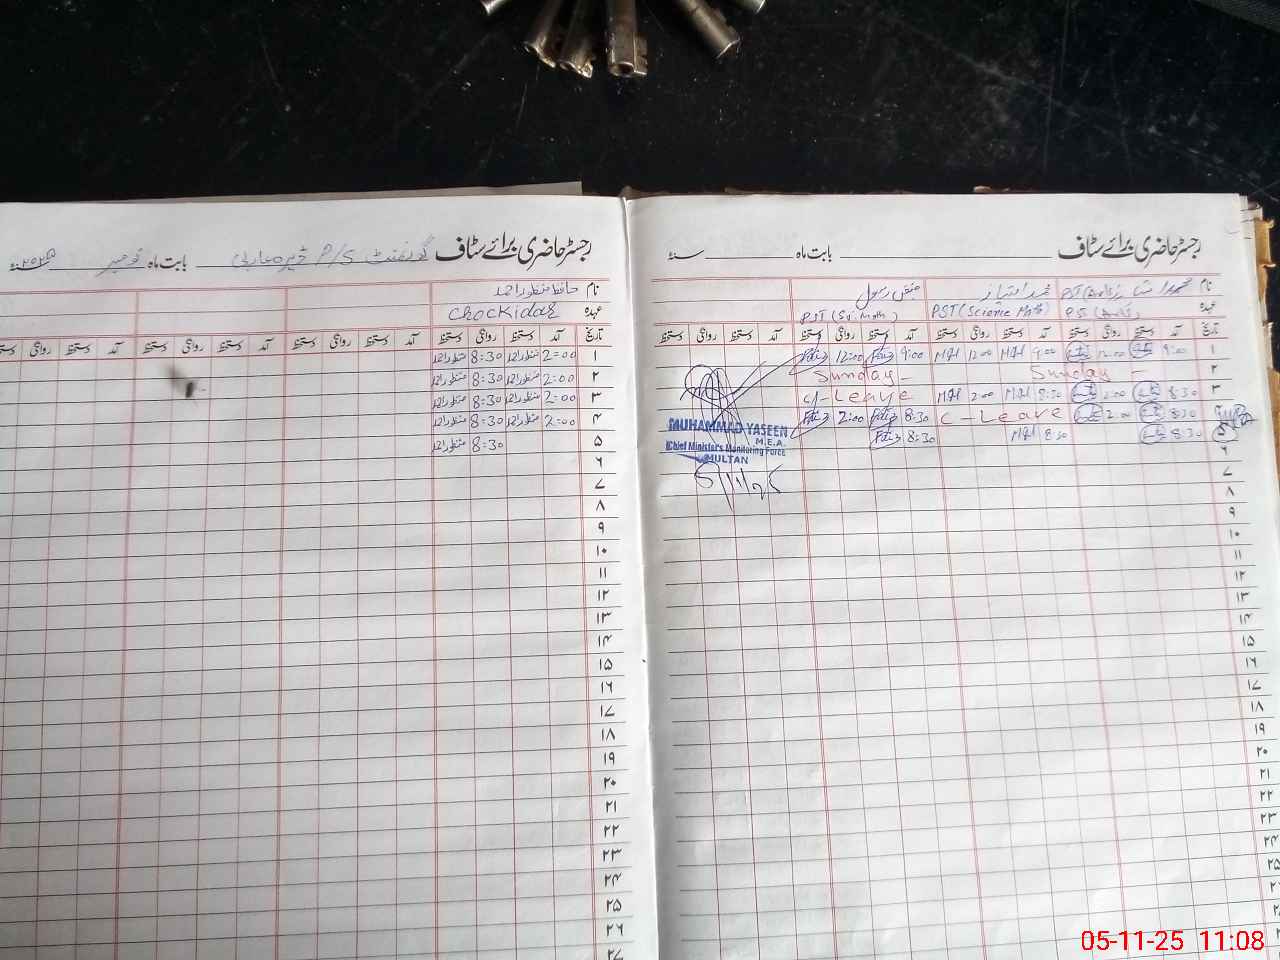 رجسٹر حاضری برائے سٹاف ــــــ بابت ماہ ــــــ سنہ ــــــ
نام
عہدہ PST (Science Math)
تاریخ آمد دستخط روانگی دستخط آمد دستخط روانگی دستخط آمد دستخط روانگی دستخط آمد دستخط روانگی دستخط
۱ 9:00 12:00 9:00 12:00 9:00 12:00
۲ Sunday - Sunday -
۳ 8:30 2:00 8:30 2:00 C/-Leave
۴ 8:30 2:00 C-Leave 8:30 2:00
۵ 8:30 8:30 8:30
MUHAMMAD YASEEN
M.E.A.
Chief Minister's Monitoring Force
MULTAN
5/11/25
۶
۷
۸
۹
۱۰
۱۱
۱۲
۱۳
۱۴
۱۵
۱۶
۱۷
۱۸
۱۹
۲۰
۲۱
۲۲
۲۳
۲۴
۲۵
رجسٹر حاضری برائے سٹاف گورنمنٹ P/S بابت ماہ نومبر سنہ ۲۰۲۵
نام حافظ منظور احمد
عہدہ Chockidar
تاریخ آمد دستخط روانگی دستخط آمد دستخط روانگی دستخط آمد دستخط روانگی دستخط آمد دستخط روانگی دستخط
۱ 2:00 منظور احمد 8:30 منظور احمد
۲ 2:00 منظور احمد 8:30 منظور احمد
۳ 2:00 منظور احمد 8:30 منظور احمد
۴ 2:00 منظور احمد 8:30 منظور احمد
۵ 8:30 منظور احمد
۶
۷
۸
۹
۱۰
۱۱
۱۲
۱۳
۱۴
۱۵
۱۶
۱۷
۱۸
۱۹
۲۰
۲۱
۲۲
۲۳
۲۴
۲۵
۲۶
۲۷
05-11-25 11:08